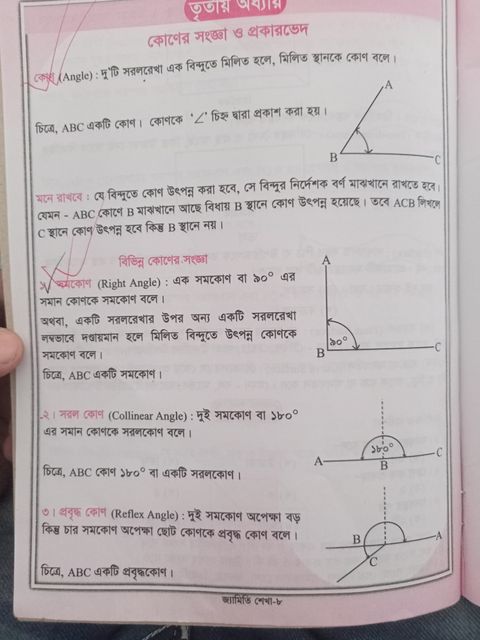 তৃতীয় অধ্যায়
কোণের সংজ্ঞা ও প্রকারভেদ
কোণ (Angle) : দু'টি সরলরেখা এক বিন্দুতে মিলিত হলে, মিলিত স্থানকে কোণ বলে।
চিত্রে, ABC একটি কোণ। কোণকে '∠' চিহ্ন দ্বারা প্রকাশ করা হয়।
A
B
C
মনে রাখবে : যে বিন্দুতে কোণ উৎপন্ন করা হবে, সে বিন্দুর নির্দেশক বর্ণ মাঝখানে রাখতে হবে।
যেমন - ABC কোণে B মাঝখানে আছে বিধায় B স্থানে কোণ উৎপন্ন হয়েছে। তবে ACB লিখলে
C স্থানে কোণ উৎপন্ন হবে কিন্তু B স্থানে নয়।
বিভিন্ন কোণের সংজ্ঞা
১। সমকোণ (Right Angle) : এক সমকোণ বা ৯০° এর
সমান কোণকে সমকোণ বলে।
অথবা, একটি সরলরেখার উপর অন্য একটি সরলরেখা
লম্বভাবে দণ্ডায়মান হলে মিলিত বিন্দুতে উৎপন্ন কোণকে
সমকোণ বলে।
চিত্রে, ABC একটি সমকোণ।
A
৯০°
B
C
২। সরল কোণ (Collinear Angle) : দুই সমকোণ বা ১৮০°
এর সমান কোণকে সরলকোণ বলে।
চিত্রে, ABC কোণ ১৮০° বা একটি সরলকোণ।
১৮০°
A
B
C
৩। প্রবৃদ্ধ কোণ (Reflex Angle) : দুই সমকোণ অপেক্ষা বড়
কিন্তু চার সমকোণ অপেক্ষা ছোট কোণকে প্রবৃদ্ধ কোণ বলে।
চিত্রে, ABC একটি প্রবৃদ্ধকোণ।
B
A
C
জ্যামিতি শেখা-৮